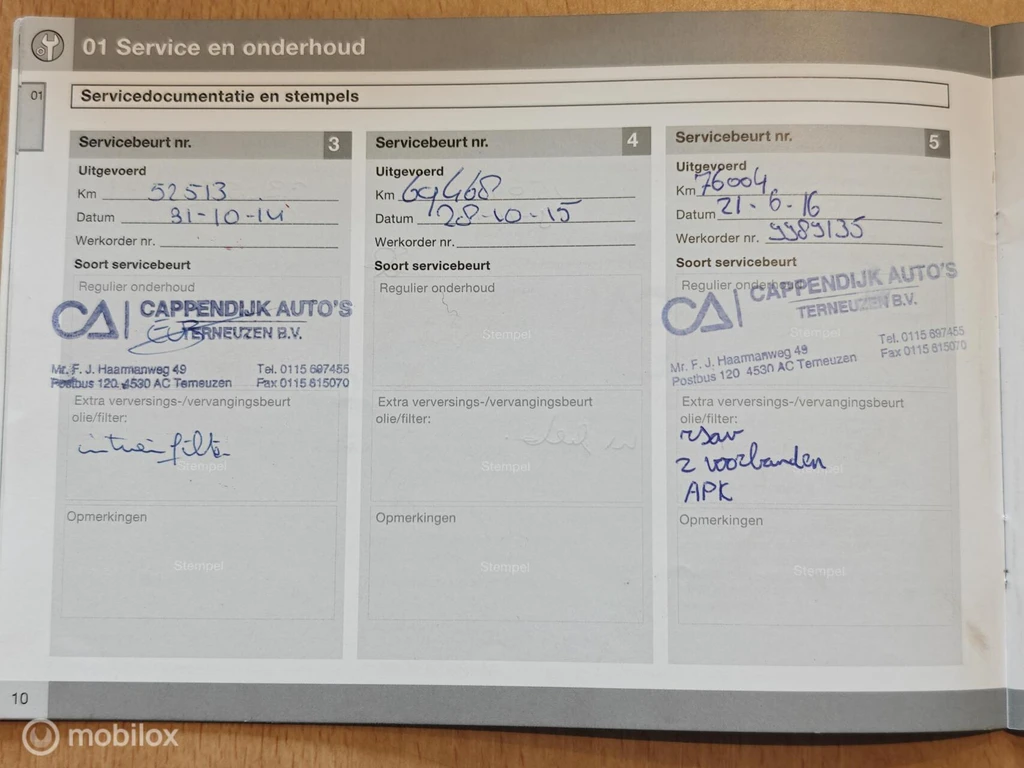 01 Service en onderhoud
01
Servicedocumentatie en stempels
Servicebeurt nr. 3
Uitgevoerd
Km 52513
Datum 31-10-14
Werkorder nr.
Soort servicebeurt
Regulier onderhoud
CA CAPPENDIJK AUTO'S
TERNEUZEN B.V.
Mr. F. J. Haarmanweg 49 Tel. 0115 697455
Postbus 120 4530 AC Terneuzen Fax 0115 615070
Extra verversings-/vervangingsbeurt
olie/filter:
filter
Stempel
Opmerkingen
Stempel
Servicebeurt nr. 4
Uitgevoerd
Km 69468
Datum 28-10-15
Werkorder nr.
Soort servicebeurt
Regulier onderhoud
Stempel
Extra verversings-/vervangingsbeurt
olie/filter:
Stempel
Opmerkingen
Stempel
Servicebeurt nr. 5
Uitgevoerd
Km 76004
Datum 21-6-16
Werkorder nr. 9989135
Soort servicebeurt
Regulier onderhoud
CA CAPPENDIJK AUTO'S
TERNEUZEN B.V.
Stempel
Mr. F. J. Haarmanweg 49 Tel. 0115 697455
Postbus 120 4530 AC Terneuzen Fax 0115 615070
Extra verversings-/vervangingsbeurt
olie/filter:
2 voorbanden
Stempel
APK
Opmerkingen
Stempel
10
mobilox